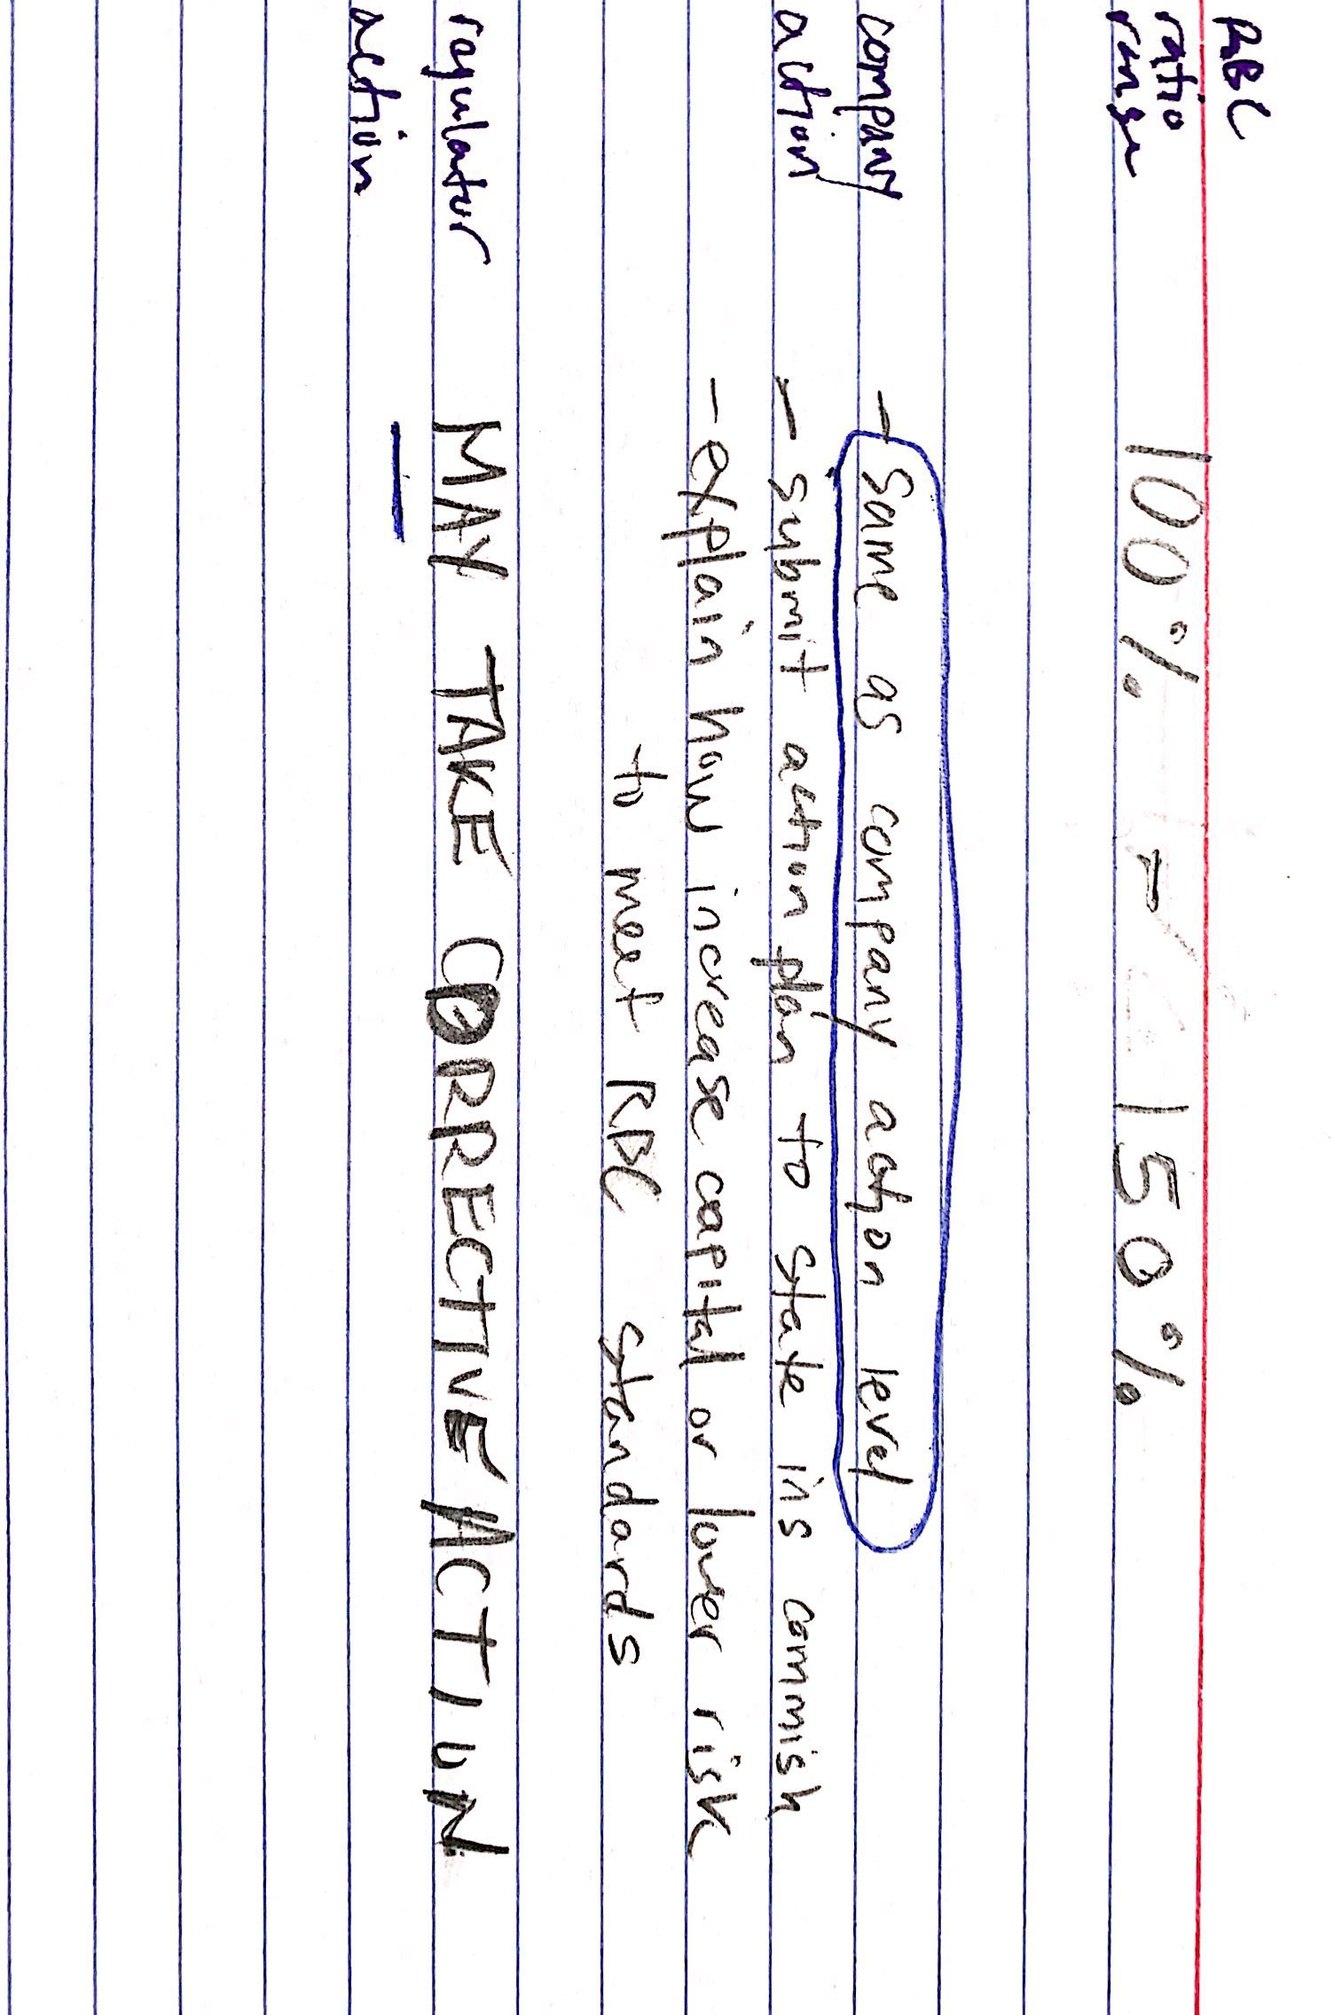 RBC
ratio
range
100% - 150%
company
action
- same as company action level
- submit action plan to state ins commish
- explain how increase capital or lower risk
to meet RBC standards
regulator
action
MAY TAKE CORRECTIVE ACTION